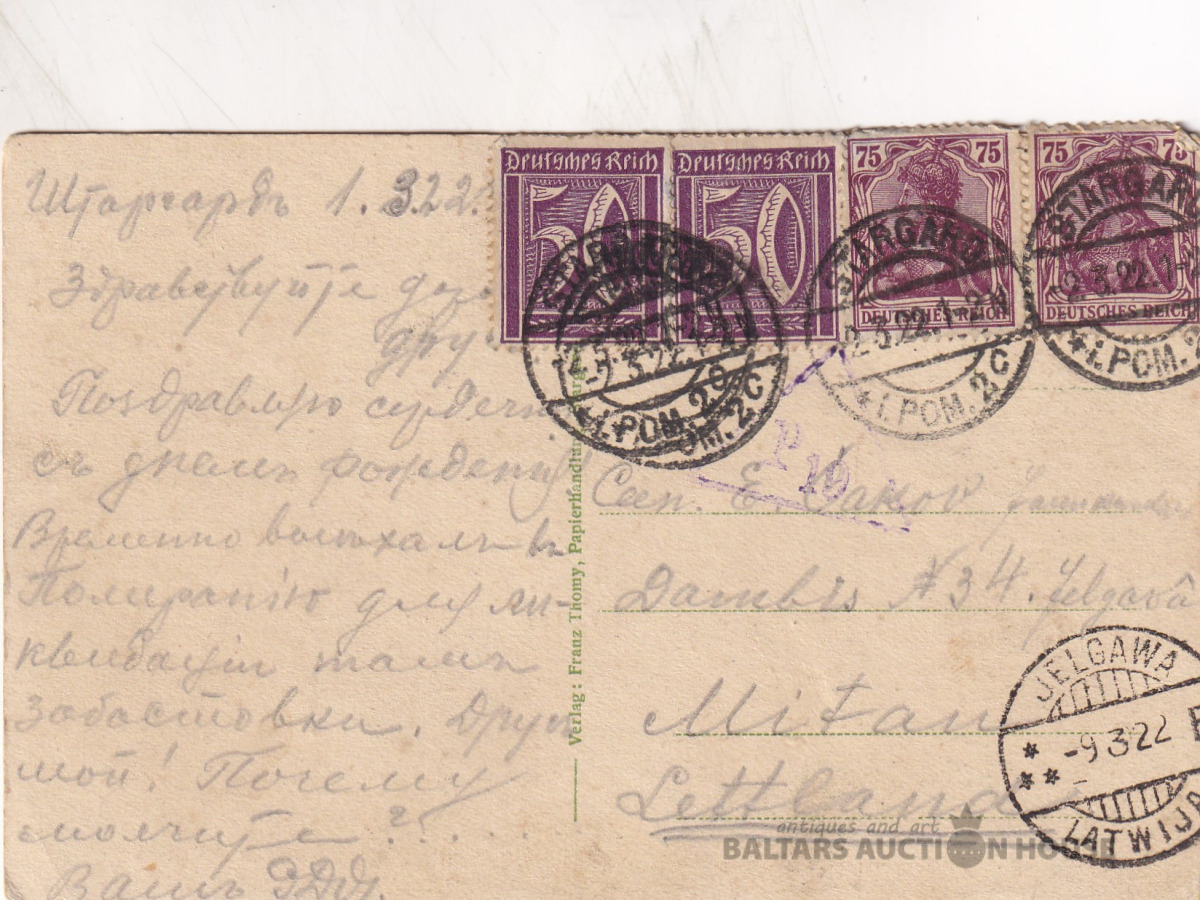 Штаргардъ 1.3.22.
Здравствуйте
Поздравляю
съ днемъ рожденія
Временно выѣхалъ въ
Померанію для ли-
квидаціи тамъ
Забастовки. Друг
мой! Почему
молчите?...
Вашъ
Deutsches Reich
50
Deutsches Reich
50
75 75
DEUTSCHES REICH
75 75
DEUTSCHES REICH
STARGARD
-2.3.22.1-2
* I. POM. 2c
STARGARD
-2.3.22.1-2
* I. POM. 2c
P
19
Verlag: Franz Thomy, Papierhandlung
E.
Dambis № 34. Jelgavâ
Mitau
Lettland
JELGAWA
-9 3 22
LATWIJA
antiques and art
BALTARS AUCTION HOUSE